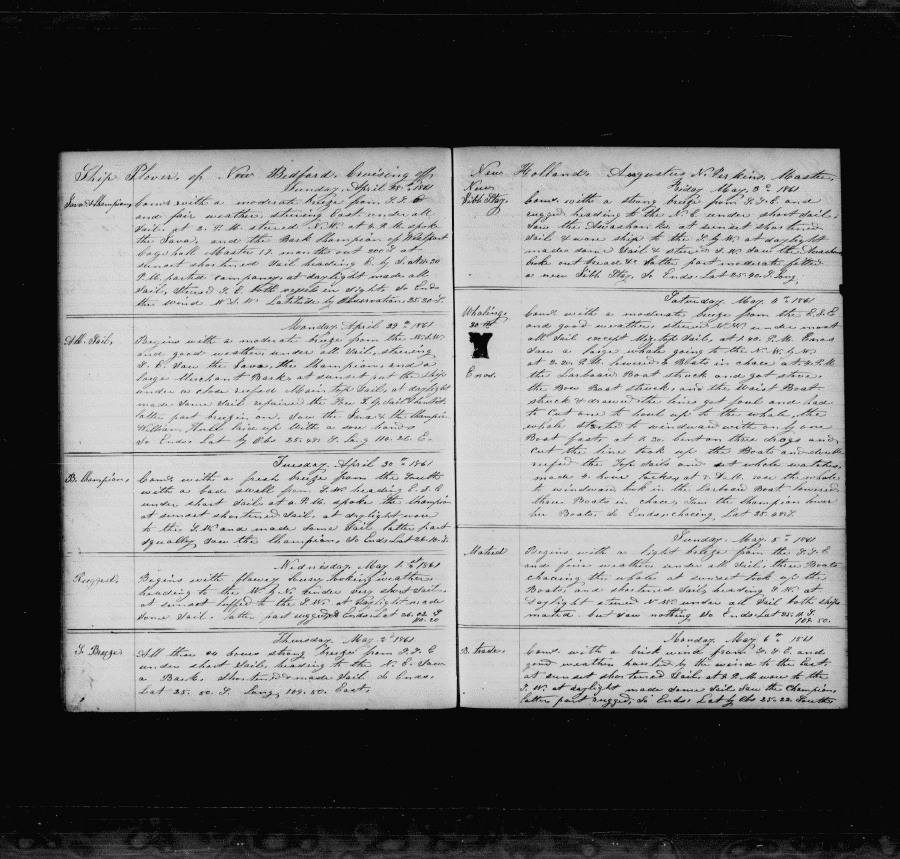 Ship Plover, of New Bedford. Cruising off,
Sunday, April 28th 1861
Java & Champion, Coms with a moderate breeze from S. S. E
and fair weather. stering East under all
Sail. at 2. P.M. stered N.W. at 4 P.M. spoke
the Java, and the Bark Champion of Westport
Master 18 months out at
sunset shortened Sail heading E. by S.
P.M. parted company at daylight made all
Sail, Stered S. E. both vessels in sight. So Ends
the wind W.S.W. Latitude by Observation 25.20 S.
Monday, April 29th 1861
Mk. Sail, Begins with a moderate breeze from the W.S.W.
and good weather under all Sail, stering
S. E. Saw the Java, the Champion, and a
large Merchant Bark, at sunset put the ship
under a close reefed Main top Sail, at daylight
made Some Sail repaired the
latter part breezin on. Saw the Java & the Champion
William laid up with a sore hand
So Ends. Lat by Obs 25.41 S. Long 110.26. E.
Tuesday, April 30th 1861
B. Champion, Coms with a fresh breeze from the South
with a bad swell from S.W. heading E.S.E
under short Sail at 2 P.M. spoke the Champion
at sunset shortened Sail. at daylight wore
to the S.W. and made Some Sail latter part
squally, Saw the Champion, So Ends Lat 26.10. S.
Wednesday, May 1st 1861
Rugged. Begins with weather
heading to the W. by N. under very short Sail.
at sunset luffed to the S.W. at daylight made
Some Sail. latter part rugged Ends Lat 26.02 S
110.20
Thursday, May 2d 1861
S. Breeze All these 24 hours strong breeze from S.S. E
under short Sail, heading to the N. E. Saw
a Bark. shortened & made Sail So Ends.
Lat 25. 50. S. Long, 109. 50. East.
New Holland. Augustus N. Perkins, Master,
Friday May, 3d 1861
New
Jibb Stay, Coms with a strong breeze from S.S.E. and
rugged heading to the N. E under short Sail,
Saw the Awashonks at sunset shortened
Sail & wore ship to the S. by W. at daylight
made some Sail & stered S. W. Saw the Awashonks
broke out bread &c latter part moderate fitted
a new Jibb Stay, So Ends. Lat 25.40. S. Long,
Saturday, May, 4th 1861
Whaling, Coms with a moderate breeze from the E.S.E
and good weather. stered N.W. under most
all Sail except Miz. top Sail, at 1.40. P.M. Enos
Saw a large whale going to the N. W. by W.
at 2.20. P.M. lowered 4 Boats in chace at 4. P.M.
Enos. the Larboard Boat struck and got stove.
the Bow Boat struck and the Waist Boat
struck & drawed, the line got foul and had
to cut one to haul up to the whale. the
whale started to windward with only one
Boat fast at 8.30. bent on three drags and
cut the line took up the Boats and double
reefed the Top Sails and set whole watches,
made 2 hour tackes, at saw the whale
to windward took in the Larboard Boat lowered
three Boats in chace, Saw the Champion lower
her Boats, So Ends, chacing, Lat 25.48 S.
Sunday, May, 5th 1861
Mated Begins with a light breeze from the S.S.E
and fine weather under all Sail, three Boats
chaceing the whale at sunset took up the
Boats, and shortened Sail, heading S.W. at
daylight stered N.W. under all Sail both ships
mated. but saw nothing So Ends Lat 25.
108.50.
Monday, May 6th 1861
B. trades. Coms. with a brisk wind from S.S.E. and
good weather hauled by the wind to the East
at sunset shortened Sail. at 8 P.M wore to the
S.W. at daylight made Some Sail Saw the Champion
latter part rugged, So Ends. Lat by Obs 25.22. South.